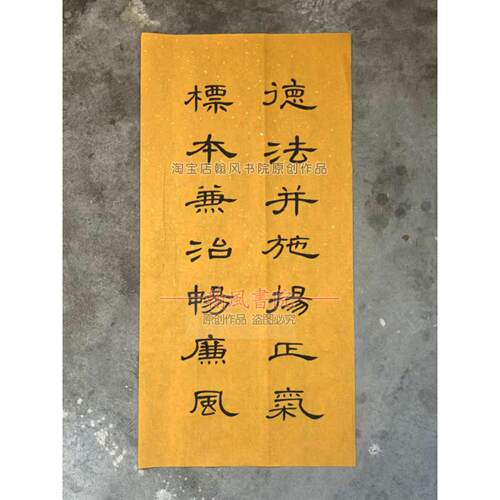 德法并施揚正氣
標本兼治暢廉風
淘宝店翰风书院原创作品
翰風書院
原创作品 盗图必究